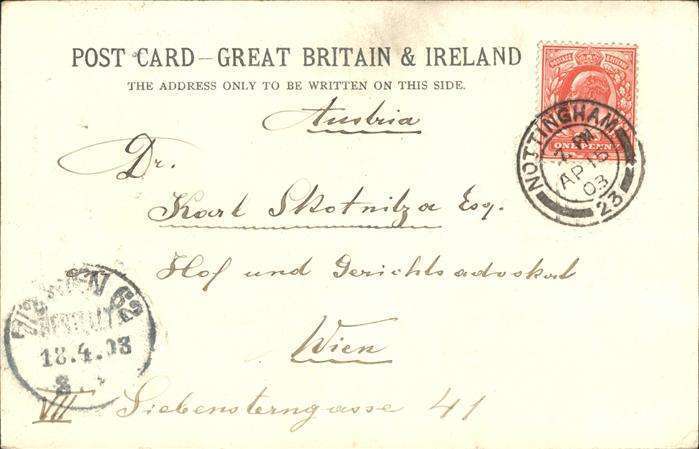 POST CARD—GREAT BRITAIN & IRELAND
THE ADDRESS ONLY TO BE WRITTEN ON THIS SIDE.
ONE PENNY
NOTTINGHAM
PM
AP 15
03
23
Austria
Dr.
Karl Skotnitza Esq.
Hof und Gerichtsadvokat
Wien
VII Siebensterngasse 41
WIEN 62
18.4.03
8